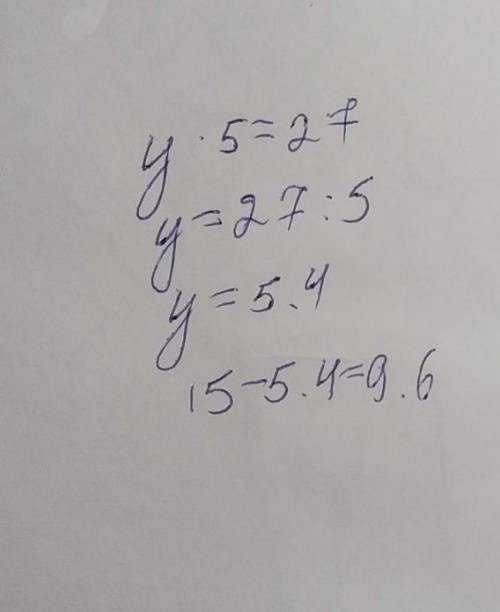 y · 5 = 27
y = 27 : 5
y = 5.4
15 - 5.4 = 9.6